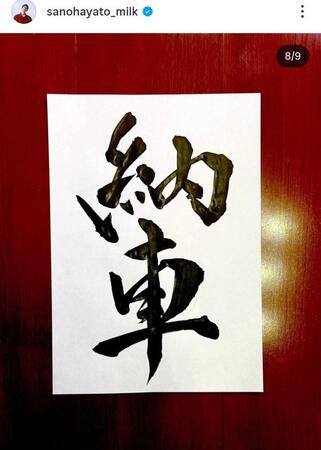 sanohayato_milk
8/9
納車